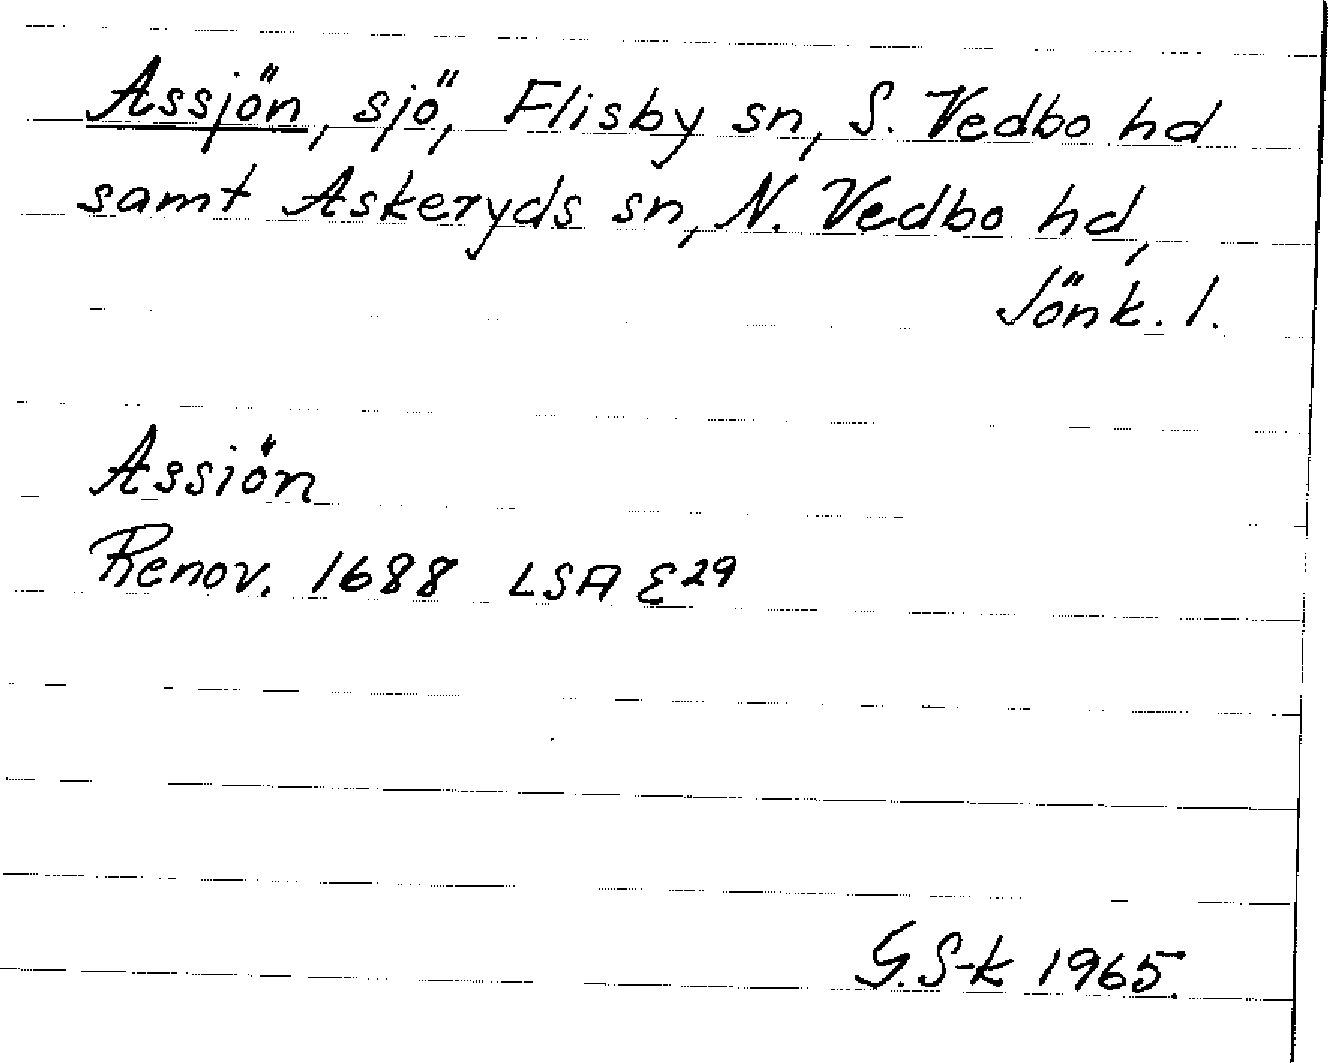 Assjön, sjö, Flisby sn, S. Vedbo hd
samt Askeryds sn, N. Vedbo hd,
Jönk. l.
Assiön
Renov. 1688 LSA E29
G.S-k 1965.